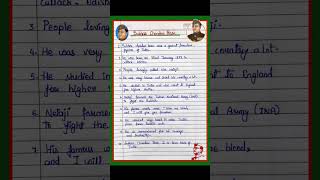 Subhash Chandra Bose
1. Subhash Chandra Bose was a great freedom
fighter of India.
2. He was born on 23rd January 1897 in
Cuttack, Odisha.
3. People lovingly called him Netaji.
4. He was very brave and loved his country a lot.
5. He studied in India and also went to England
for higher studies.
6. Netaji formed the Indian National Army (INA)
to fight the British.
7. His famous words were "Give me blood,
and I will give you freedom".
8. He worked very hard to make India
free from British rule.
9. He is remembered for his courage
and leadership.
10. Subhash Chandra Bose is a true hero of
3. People loving
4. He was very
country a lot.
5. He studied in
to England
for higher
6. Netaji formed
Army (INA)
to fight the
7. His famous
me blood,
and "I will